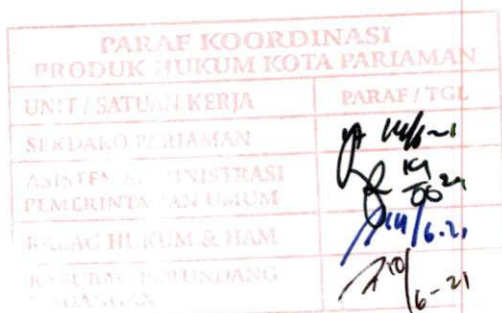 PARAF KOORDINASI
PRODUK HUKUM KOTA PARIAMAN
UNIT / SATUAN KERJA PARAF / TGL
SEKDAKO PARIAMAN
ASISTEN ADMINISTRASI
PEMERINTAHAN UMUM
KABAG HUKUM & HAM 14/6-21
KASUBAG PERUNDANG
UNDANGAN 10/6-21